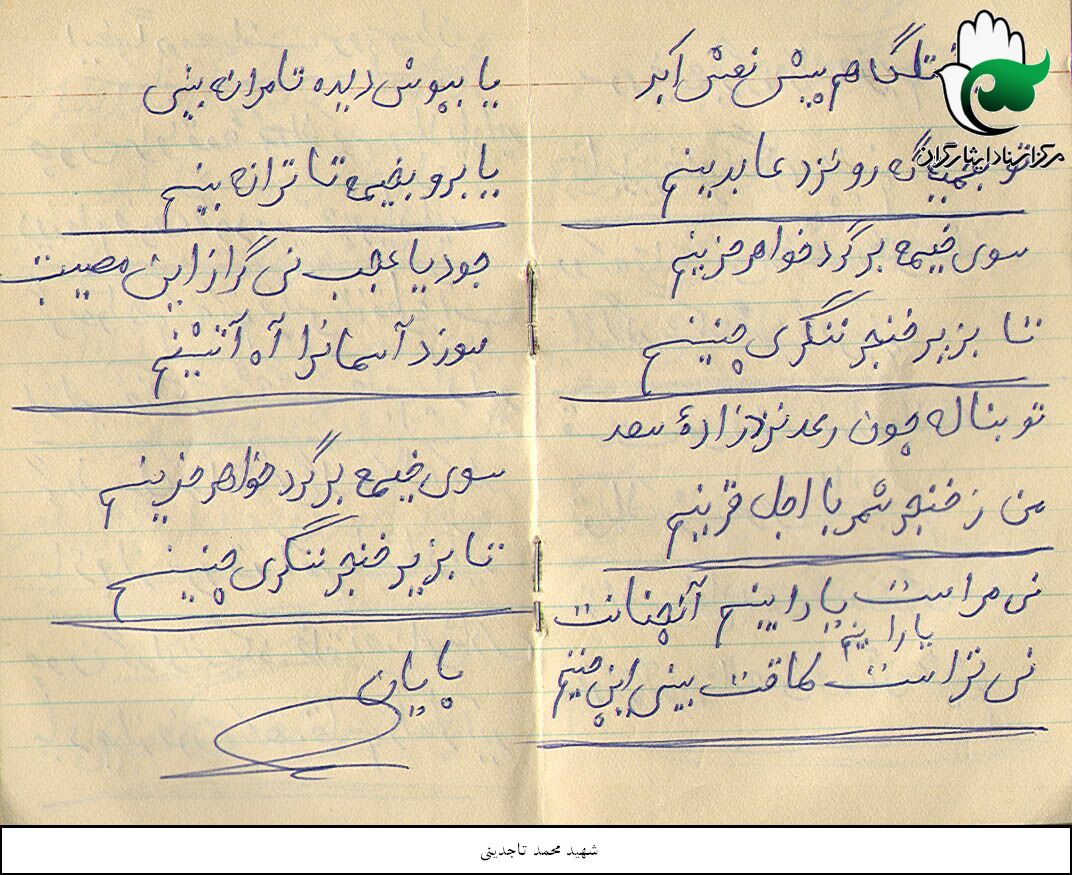 قتلگاهم پیش نعش اکبر
تو بخیمه‌گه رو نزد عابدینم
سوی خیمه برگرد خواهر حزینم
تا بزیر خنجر ننگری چنینم
تو بناله چون رعد نزد زادهٔ سعد
من ز خنجر شمر با اجل قرینم
نی مراست یارا بینم آنچنانت
یارا بینم
نی تراست طاقت بینی این چنینم
یا بپوش دیده تا مرا نه بینی
یا برو بخیمه تا ترا نه بینم
جودیا عجب نی گر از این مصیبت
سوزد آسمانرا آه آتشینم
سوی خیمه برگرد خواهر حزینم
تا بزیر خنجر ننگری چنینم
پایان
مرکز اسناد ایثارگران
شهید محمد تاجدینی